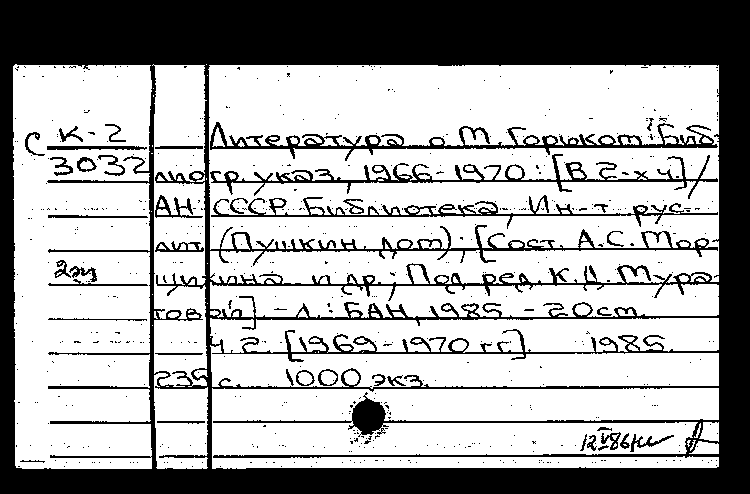 С К-2 Литература о М. Горьком: Биб-
3032 лиогр. указ., 1966-1970: [В 2-х ч.] /
АН СССР. Библиотека, Ин-т рус.
лит. (Пушкин. дом); [Сост. А.С. Мор-
2эк щихина и др.; Под ред. К.Д. Мура-
товой] - Л.: БАН, 1985. - 20 см.
Ч. 2. [1969-1970 гг.]. 1985.
235 с. 1000 экз.
12 V 86